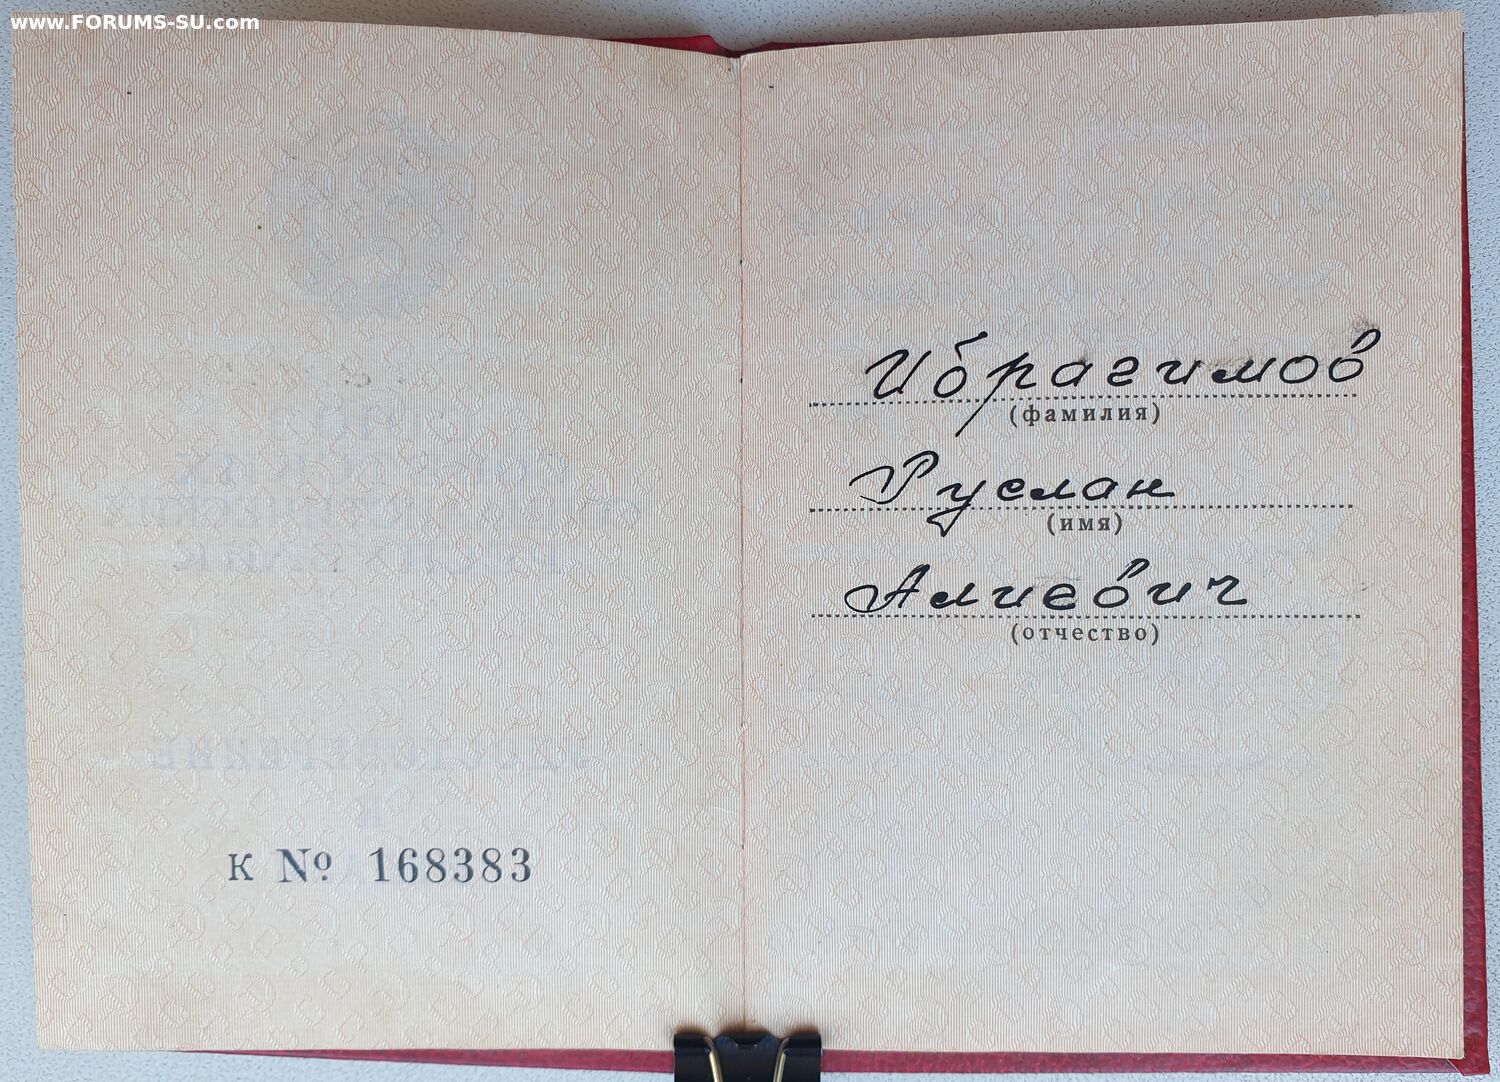 www.FORUMS-SU.com
К № 168383
Ибрагимов
(фамилия)
Руслан
(имя)
Алиевич
(отчество)